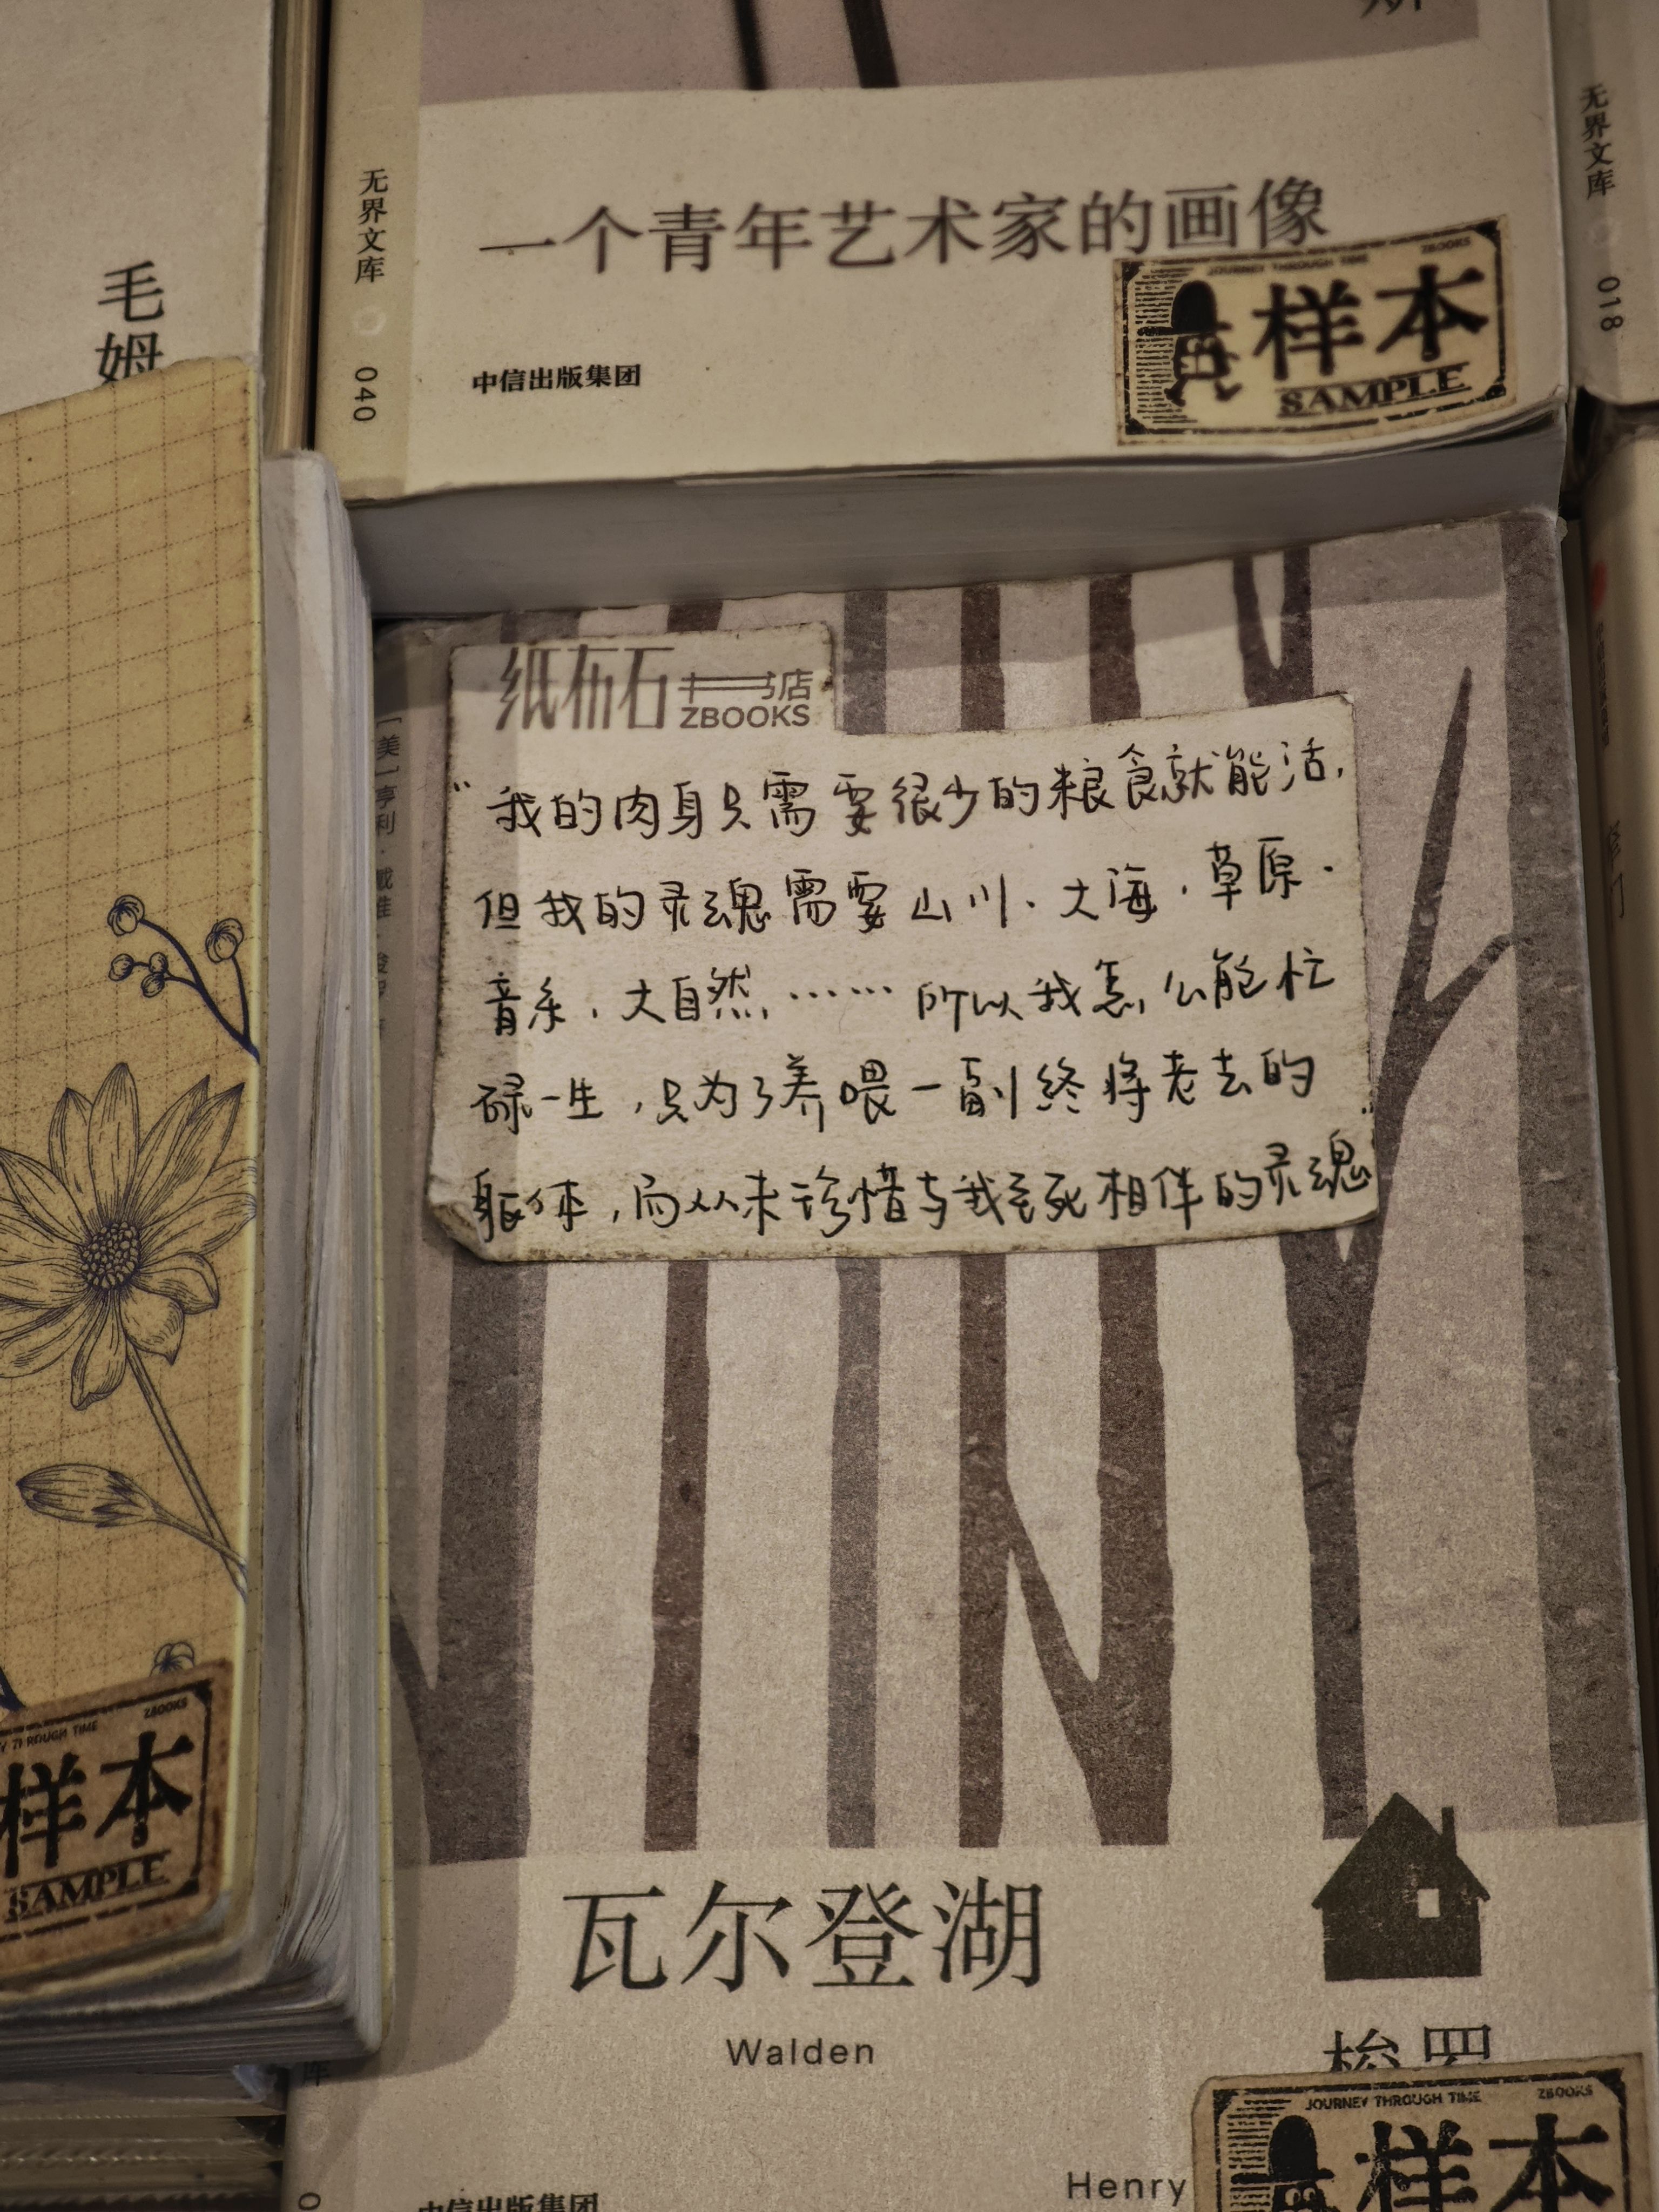 无界文库
040
一个青年艺术家的画像
中信出版集团
JOURNEY THROUGH TIME
ZBOOKS
样本
SAMPLE
无界文库
018
毛姆
纸布石书店
ZBOOKS
“我的肉身只需要很少的粮食就能活，
但我的灵魂需要山川、大海、草原、
音乐、大自然，……所以我怎么能忙
碌一生，只为了养喂一副终将老去的
躯体，而从未珍惜与我至死相伴的灵魂”
THROUGH TIME
ZBOOKS
样本
SAMPLE
瓦尔登湖
Walden
梭罗
Henry
中信出版集团
JOURNEY THROUGH TIME
ZBOOKS
样本